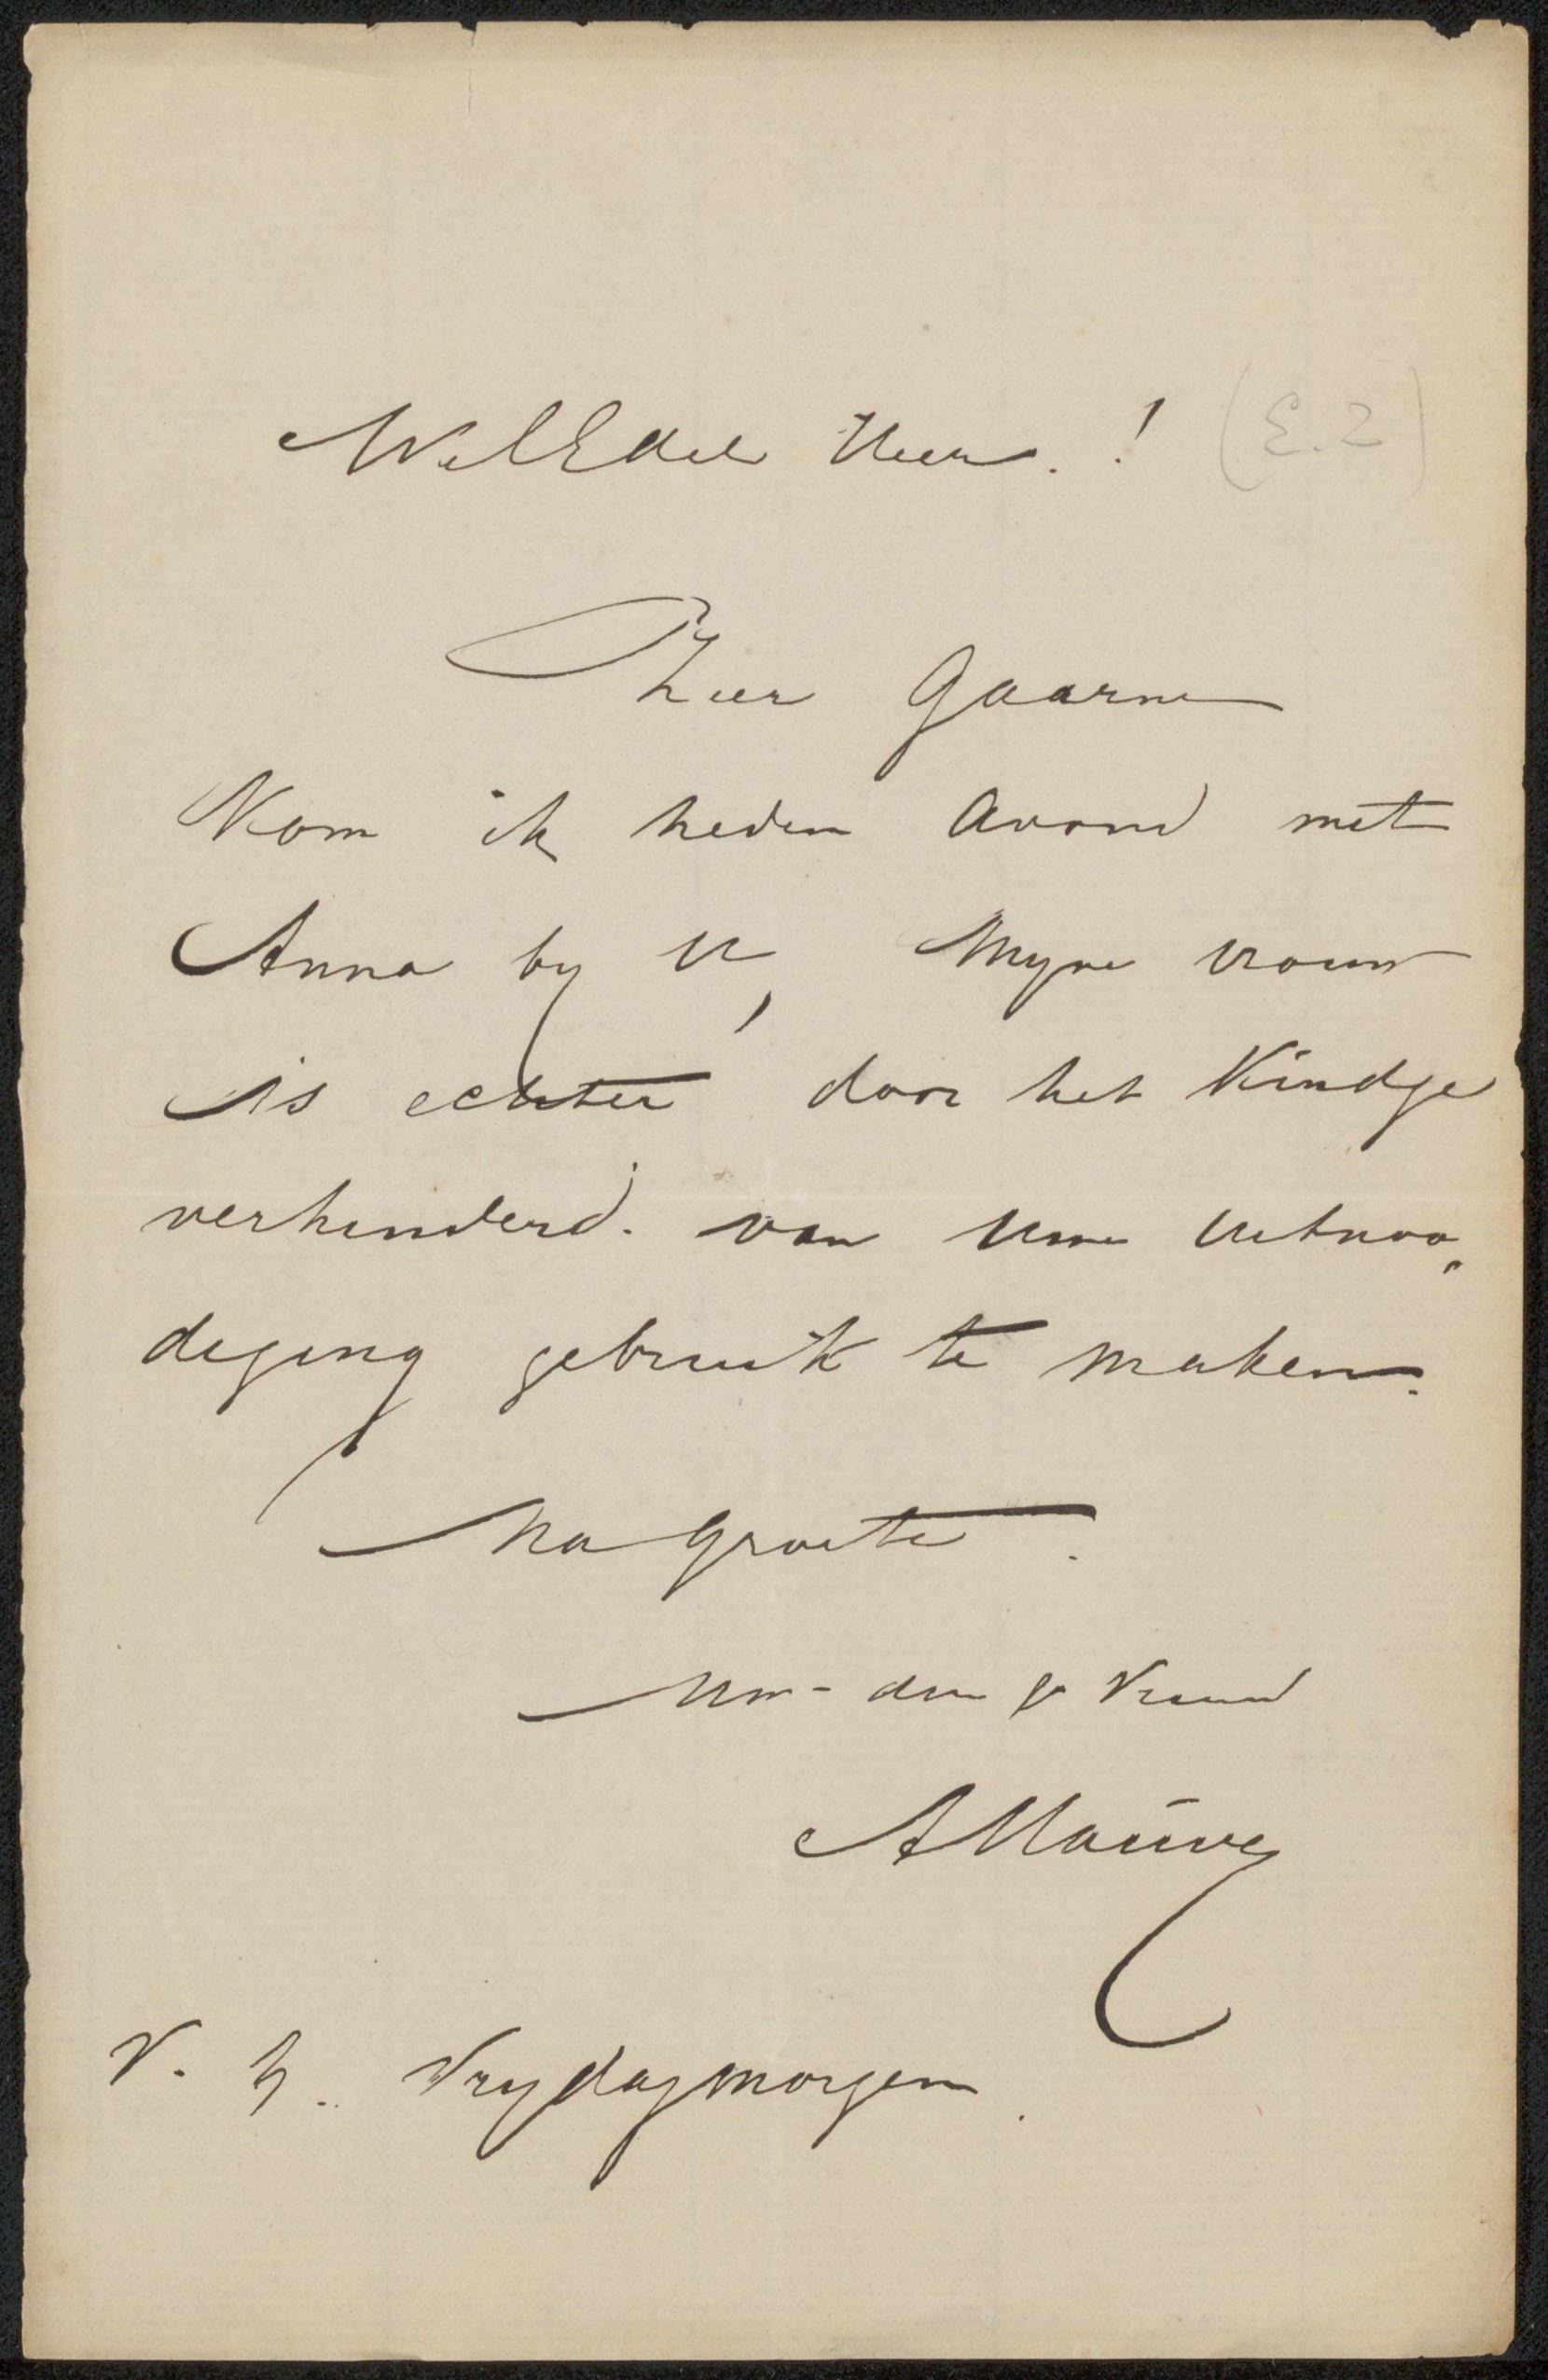 WelEdele Heer.! (E.2)
Zeer Gaarne
Kom ik heden Avond met
Anna by U, Myne vrouw
is echter door het Kindje
verhinderd. van Uwe Uitnoo„
diging gebruik te maken.
Na Groete.
Uw - dw Vriend
AMauve
V. h. Vrydagmorgen.